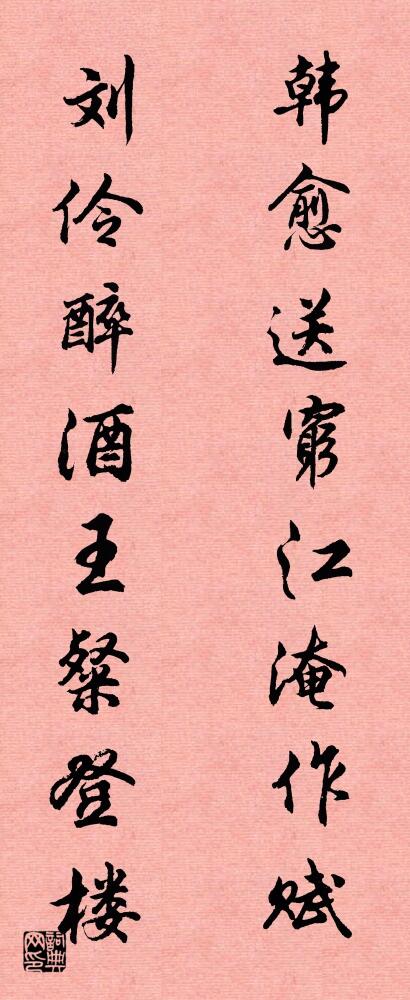 韩愈送穷江淹作赋
刘伶醉酒王粲登楼